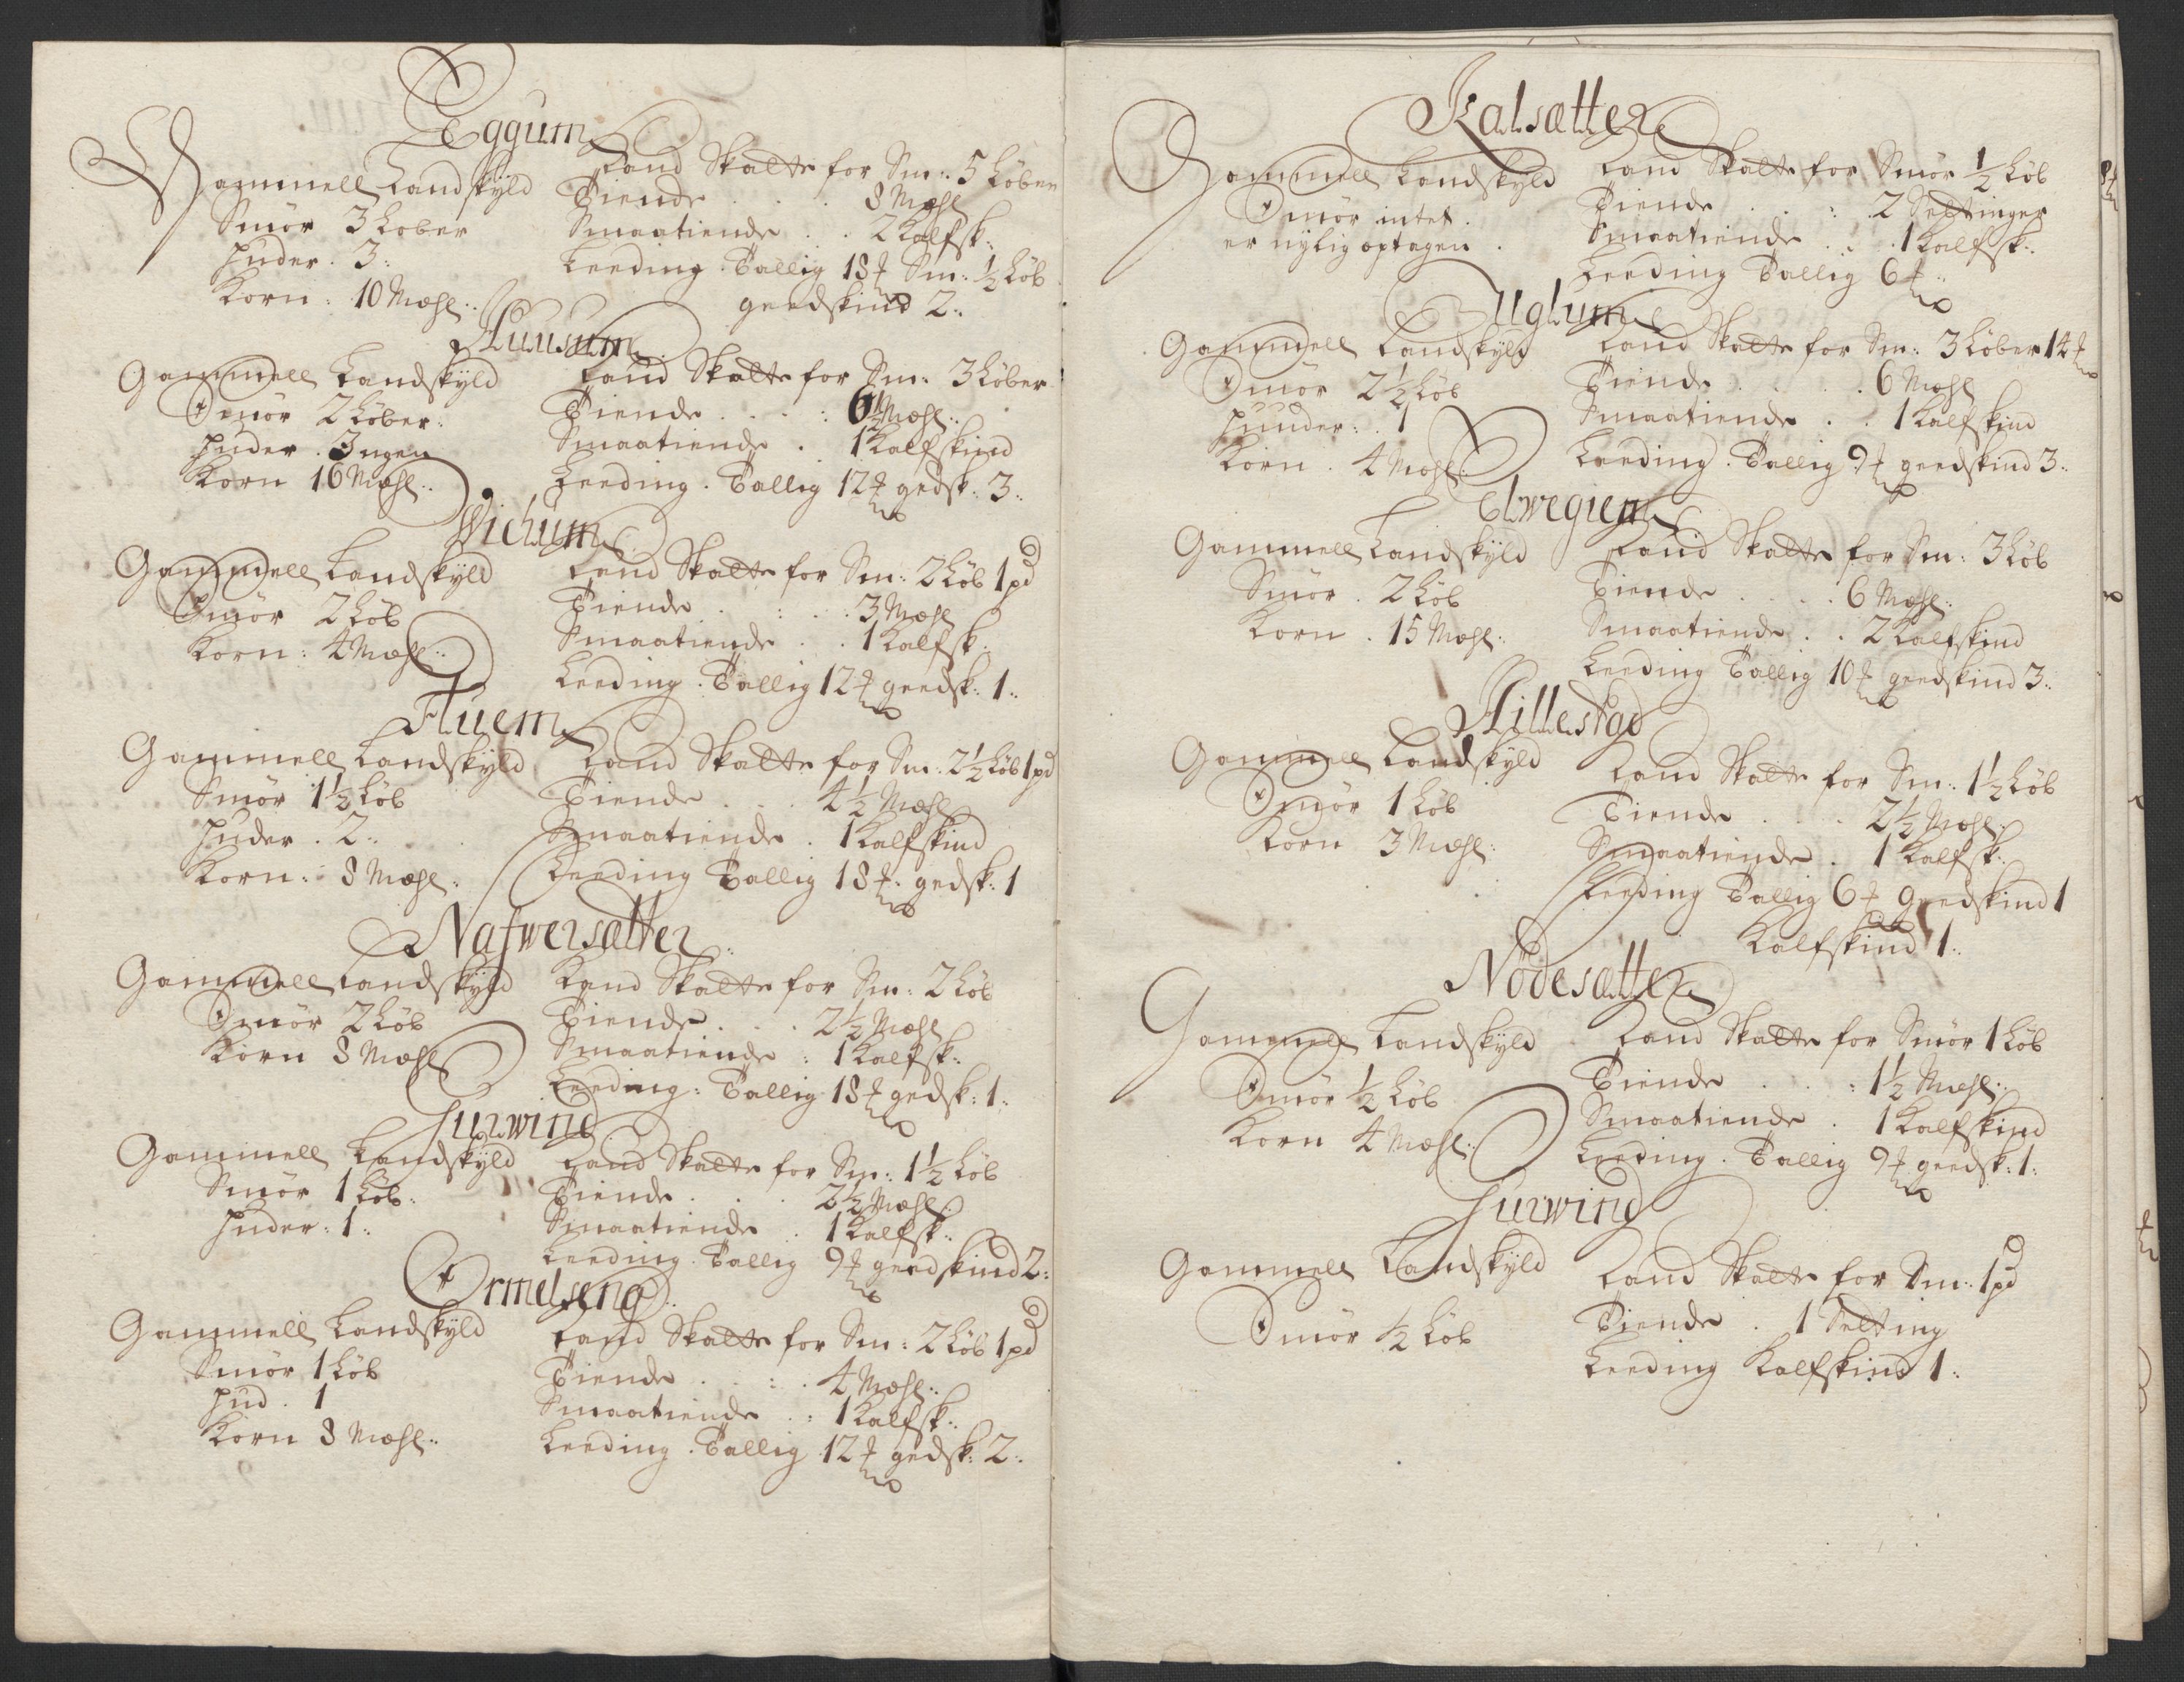 Eggum
Gammell Landskyld
Smör 3 Løber
Huder . 3 :
Korn : 10 Mæhl :
Land Skatte for Sm : 5 Løber
Tiende . . . 8 Mæhl
Smaatiende . . 2 Kalfsk :
Leeding . Tallig 18 ℔ Sm : ½ Løb
geedskind 2 :
Huusum
Gammell Landskyld
Smör 2 Løber :
Huder . Ingen
Korn 16 Mæhl :
Land Skatte for Sm : 3 Løber
Tiende . . . : 6½ Mæhl :
Smaatiende . 1 Kalfskind
Leeding . Tallig 12 ℔ gedsk : 3 :
Wichum
Gammell Landskyld
Smör 2 Løb
Korn : 4 Mæhl :
Land Skatte for Sm : 2 Løb 1 pd
Tiende . : . . 3 Mæhl
Smaatiende . . 1 Kalfsk :
Leeding . Tallig 12 ℔ geedsk : 1 :
Huem
Gammell Landskyld
Smör 1½ Løb
Huder . 2 :
Korn : 8 Mæhl :
Land Skatte for Sm : 2½ Løb 1 pd
Tiende . . . 4½ Mæhl
Smaatiende . 1 Kalfskind
Leeding Tallig 18 ℔ gedsk : 1
Nafwersætter
Gammell Landskyld
Smör 2 Løb
Korn 8 Mæhl
Land Skatte for Sm : 2 Løb
Tiende . . . 2½ Mæhl
Smaatiende : 1 Kalfsk :
Leeding : Tallig 18 ℔ gedsk : 1 :
Turwind
Gammell Landskyld
Smör 1 Løb :
Huder : 1 :
Land Skatte for Sm : 1½ Løb
Tiende . . . 2½ Mæhl :
Smaatiende . 1 Kalfsk :
Leeding . Tallig 9 ℔ geedskind 2 :
Ormelseng
Gammell Landskyld
Smör 1 Løb
Hud . 1
Korn 8 Mæhl :
Land Skatte for Sm : 2 Løb 1 pd
Tiende . . : . 4 Mæhl :
Smaatiende . : 1 Kalfsk :
Leeding . Tallig 12 ℔ gedsk : 2 :
Kalsætter
Gammell Landskyld
Smör intet .
er nylig optagen .
Land Skatte for Smör ½ Løb
Tiende . . : 2 Seltinger
Smaatiende . . . 1 Kalfsk :
Leeding Tallig 6 ℔ :
Uglum
Gammell Landskyld
Smör 2½ Løb
Huuder : 1
Korn . 4 Mæhl :
Land Skatte for Sm : 3 Løber 14 ℔
Tiende . . . . 6 Mæhl
Smaatiende . . 1 Kalfskind
Leeding . Tallig 9 ℔ geedskind 3 :
Elwegiem
Gammell Landskyld
Smör . 2 Løb
Korn . 15 Mæhl :
Land Skatte for Sm : 3 Løb
Tiende . . . . 6 Mæhl :
Smaatiende . . 2 Kalfskind
Leeding Tallig 10 ℔ geedskind 3 :
Hillestad
Gammell Landskyld
Smör 1 Løb
Korn 3 Mæhl :
Land Skatte for Sm : 1½ Løb
Tiende . . . 2½ Mæhl :
Smaatiende . 1 Kalfsk :
Leeding Tallig 6 ℔ Geedskind 1
Kalfskind 1 :
Nödesætter
Gammell Landskyld
Smör ½ Løb
Korn 4 Mæhl :
Land Skatte for Smör 1 Løb
Tiende . . . : 1½ Mæhl :
Smaatiende . 1 Kalfskind
Leeding . Tallig 9 ℔ geedsk : 1 :
Turwind
Gammell Landskyld
Smör ½ Løb
Land Skatte for Sm : 1 pd
Tiende . 1 Selting
Leeding Kalfskind 1 :